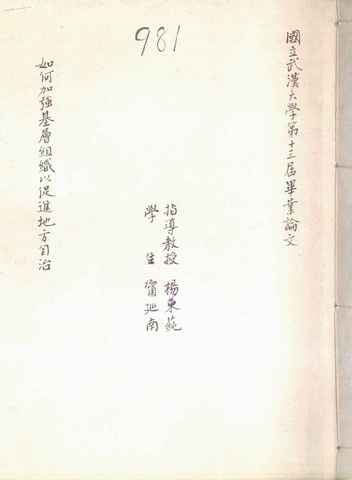 981
國立武漢大學第十三屆畢業論文
指導教授 楊東蓀
學生 甯池南
如何加強基層組織以促進地方自治